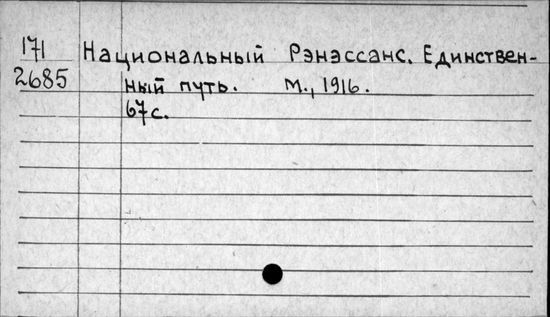 171 Национальный Рэнэссанс. Единствен-
2685 ный путь. М., 1916.
67с.